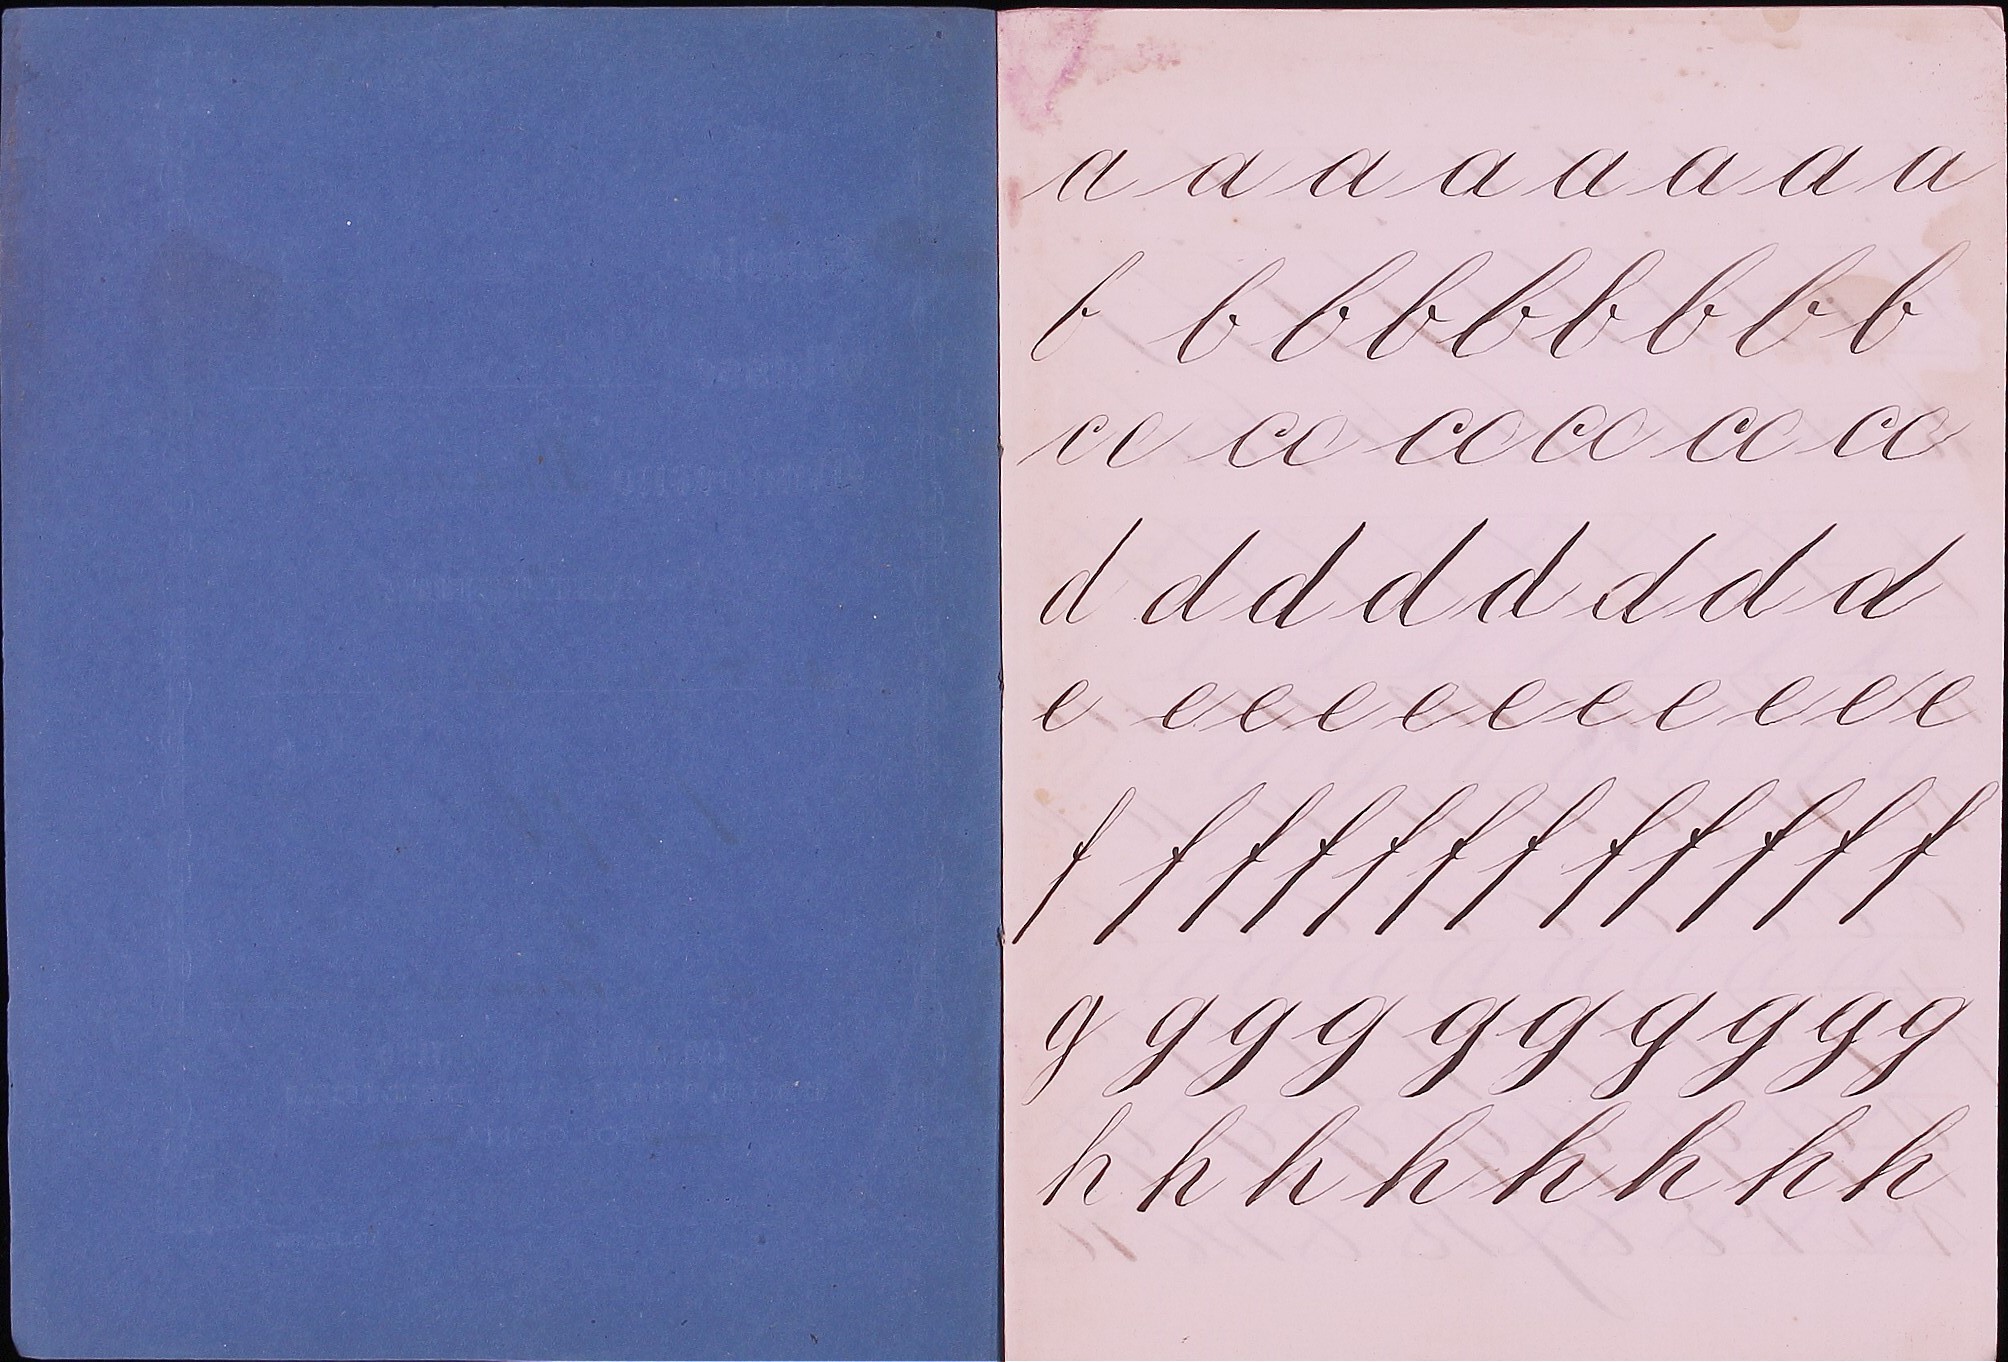 a a a a a a a a
b b b b b b b b b
cc cc cc cc cc cc
d d d d d d d d
e e e e e e e e e e e
f f f f f f f f f f f f
g g g g g g g g g g
h h h h h h h h